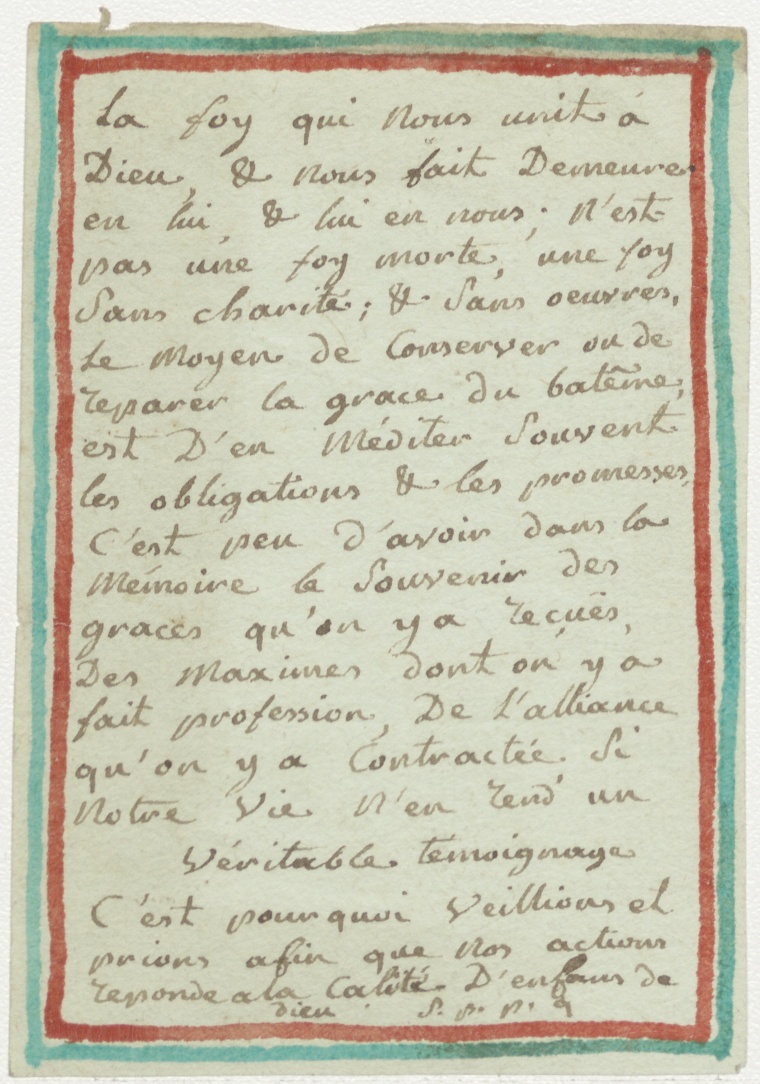 La foy qui nous unit à
Dieu, & nous fait Demeurer
en lui, & lui en nous; N'est
pas une foy morte, une foy
Sans charité; & Sans oeuvres,
Le Moyen de Conserver ou de
reparer la grace du batême,
est D'en Méditer Souvent
les obligations & les promesses,
C'est peu d'avoir dans la
Mémoire le Souvenir des
graces qu'on y a reçuës,
Des Maximes dont on y a
fait profession, De L'alliance
qu'on y a Contractée. Si
Notre Vie N'en rend un
Véritable temoignage
C'est pourquoi Veillions et
prions afin que Nos actions
reponde a la Calité D'enfans de
dieu S. p. p. q